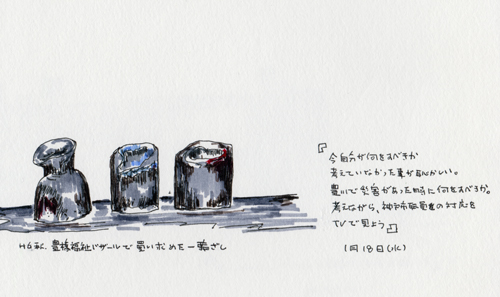 『今自分が何をすべきか
考えていなかった事がなんかい。
豊川で災害があった時に何をすべきか。
考えながら、神戸市職員の対応を
TVで見よう』
1月18日(水)
H6.秋、豊橋福祉バザールで買い求めた一輪ざし